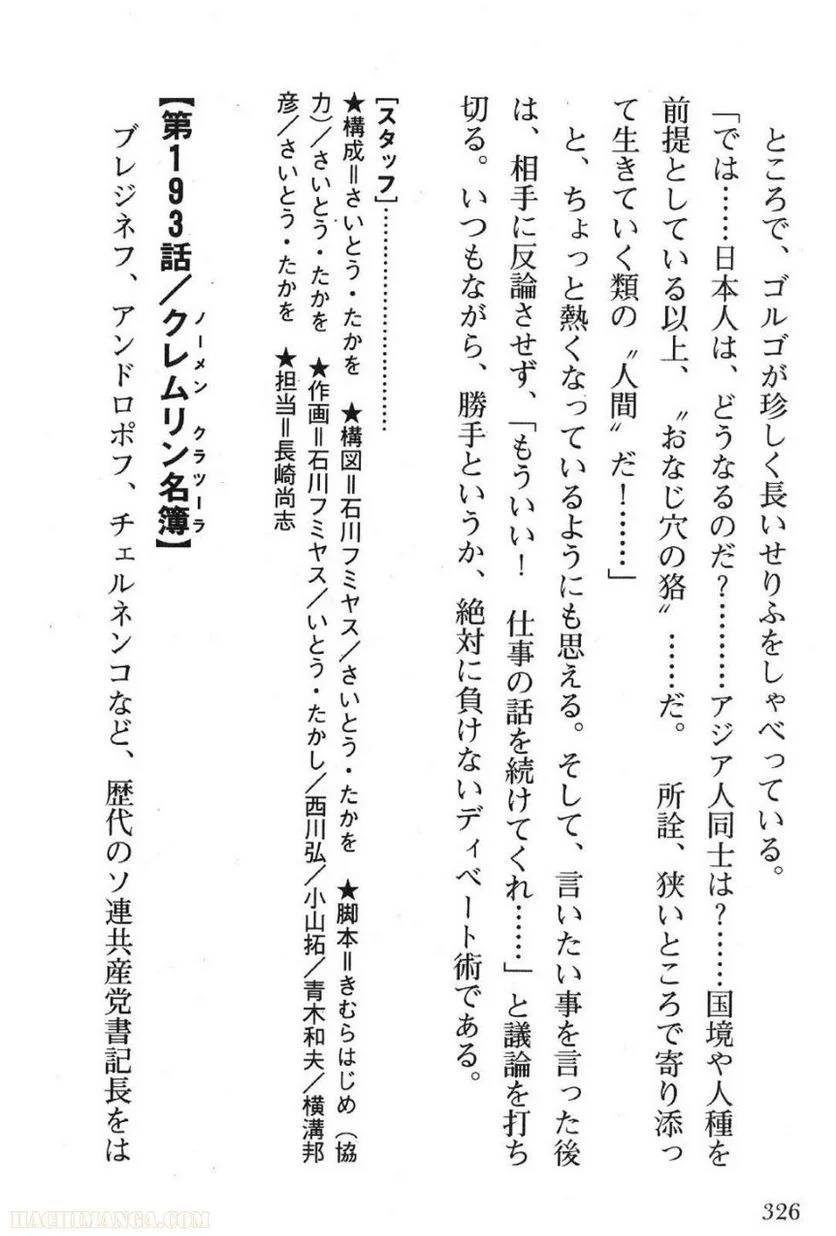 ところで、ゴルゴが珍しく長いせりふをしゃべっている。
「では……日本人は、どうなるのだ?………アジア人同士は?……国境や人種を
前提としている以上、〝おなじ穴の狢〟……だ。　所詮、狭いところで寄り添っ
て生きていく類の〝人間〟だ!……」
と、ちょっと熱くなっているようにも思える。そして、言いたい事を言った後
は、相手に反論させず、「もういい!　仕事の話を続けてくれ……」と議論を打ち
切る。いつもながら、勝手というか、絶対に負けないディベート術である。
[スタッフ]………………………………
★構成=さいとう・たかを　★構図=石川フミヤス/さいとう・たかを　★脚本=きむらはじめ（協
力）/さいとう・たかを　★作画=石川フミヤス/いとう・たかし/西川弘/小山拓/青木和夫/横溝邦
彦/さいとう・たかを　★担当=長崎尚志
ノーメン クラツーラ
【第193話/クレムリン名簿】
ブレジネフ、アンドロポフ、チェルネンコなど、歴代のソ連共産党書記長をは
326
HACHIMANGA.COM